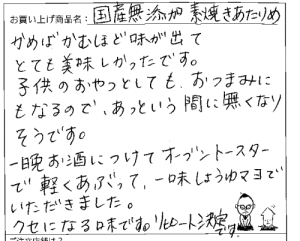 お買い上げ商品名: 国産無添加 素焼きあたりめ
かめばかむほど味が出て
とても美味しかったです。
子供のおやつとしても、おつまみに
もなるので、あっという間に無くなり
そうです。
一晩お酒につけてオーブントースター
で軽くあぶって、一味しょうゆマヨで
いただきました。
クセになる味です。リピート決定
です。